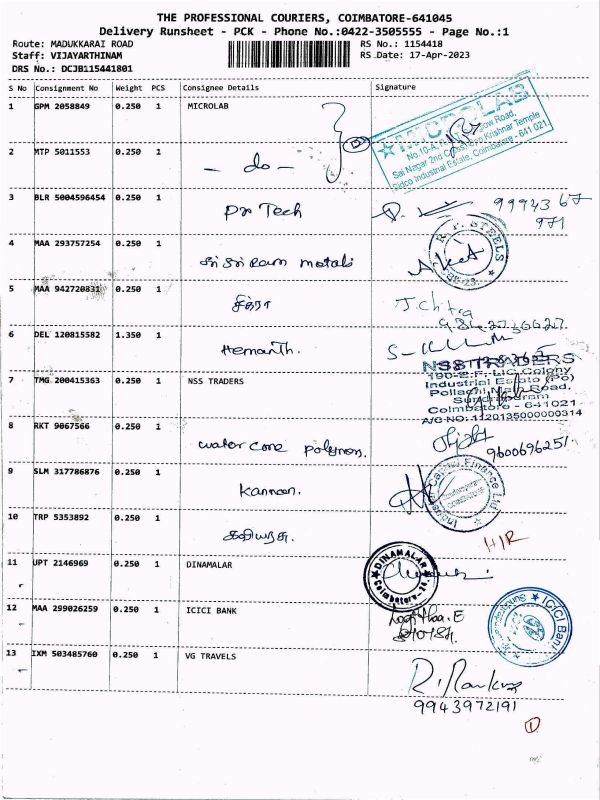 THE PROFESSIONAL COURIERS, COIMBATORE-641045
Delivery Runsheet - PCK - Phone No.:0422-3505555 - Page No.:1
Route: MADUKKARAI ROAD
RS No.: 1154418
Staff: VIJAYARTHINAM
RS Date: 17-Apr-2023
DRS No.: DCJB115441801
S No Consignment No Weight PCS Consignee Details Signature
1 GPM 2058849 0.250 1 MICROLAB
MICROLAB
Sai Nagar 2nd Cross, Krishnar Temple
Sidco Industrial Estate, Coimbatore - 641 021
2 MTP 5011553 0.250 1 - do -
3 BLR 5004596454 0.250 1 PM Tech
4 MAA 293757254 0.250 1 ஸ்ரீ ஸ்ரீ Ram metals
R. P. STEELS
5 MAA 942720831 0.250 1 சித்ரா J. Chitra
6 DEL 120815582 1.350 1 Hemanth.
7 TMG 200415363 0.250 1 NSS TRADERS
NSS TRADERS
190-S.F. LIC Colony
Industrial Estate (Po)
Pollachi Main Road,
Sundarapuram
Coimbatore - 641 021
A/C NO: 1120135000000314
8 RKT 9067566 0.250 1 water core polymers.
9600696251
9 SLM 317786876 0.250 1 Kannan.
10 TRP 5353892 0.250 1 கவியரசு.
H/R
11 UPT 2146969 0.250 1 DINAMALAR
DINAMALAR
Coimbatore-24
12 MAA 299026259 0.250 1 ICICI BANK
ICICI Bank
13 IXM 503485760 0.250 1 VG TRAVELS
9943972191
1